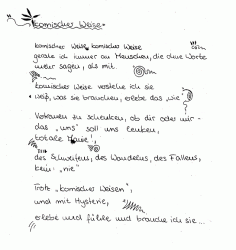 komischer Weise.
komischer Weise, komischer Weise
gerate ich immer an Menschen, die ohne Worte
mehr sagen, als mit.
komischer Weise verstehe ich sie
weiß, was sie brauchen, erlebe das „wie"
Vertrauen zu schenken, ob dir oder mir -
das „uns" soll uns lenken,
totale
des Schweifens, des Wandelns, des Fallens,
kein „nie"
Trotz „komischer Weisen",
und mit Hysterie,
erlebe und fühle und brauche ich sie...